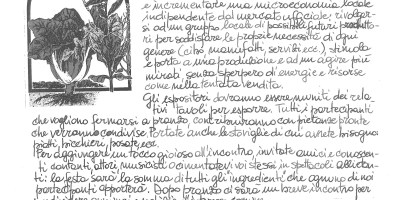 e incrementare una microeconomia locale
indipendente dal mercato ufficiale; rivolger-
si ad un gruppo locale di possibili futuri produtto-
ri per soddisfare le proprie necessità di ogni
genere (cibo, manufatti, servizi ecc.) stimola
e porta a una produzione e ad un agire più
mirati senza sperpero di energie e risorse
come nella tentata vendita.
Gli espositori dovranno essere muniti dei rela
tivi tavoli per esporre. Tutti i partecipanti
che vogliono fermarsi a pranzo, contribuiranno con pietanze pronte
che verranno condivise. Portate anche le stoviglie di cui avrete bisogno:
piatti, bicchieri, posate, ecc.
Per aggiungere un tocco gioioso all'incontro, invitate amici e conoscen-
ti: cantanti, attori, musicisti o cimentatevi voi stessi in spettacoli allietan-
ti: la festa sarà la somma di tutti gli ingredienti che ognuno di noi
partecipanti apporterà. Dopo pranzo ci sarà un breve incontro per